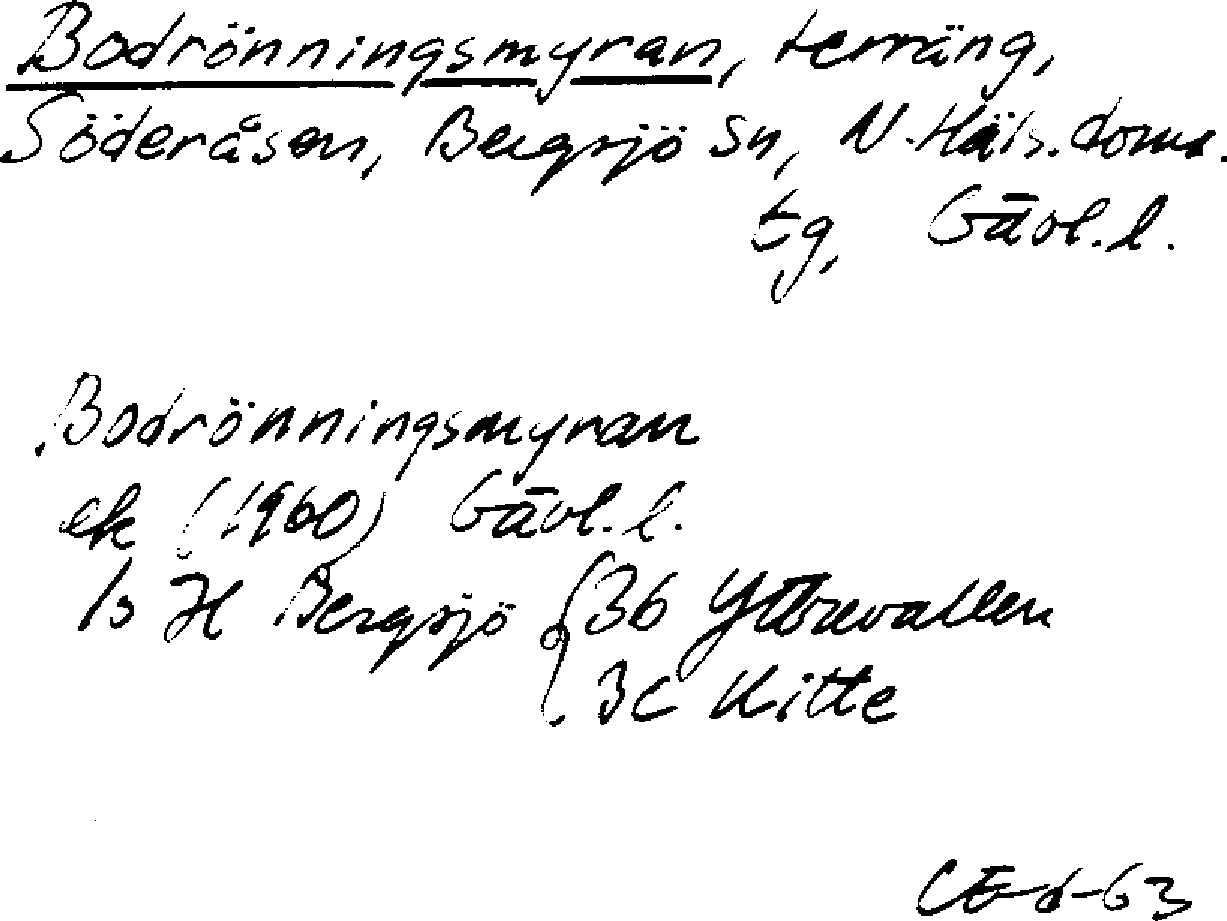 Bodrönningsmyran, terräng,
Söderåsen, Bergsjö sn, N. Häls. doms.
tg, Gävl. l.
Bodrönningsmyran
ek (1960) Gävl. l.
Bergsjö { 3b Yttrevallen
3c Kitte